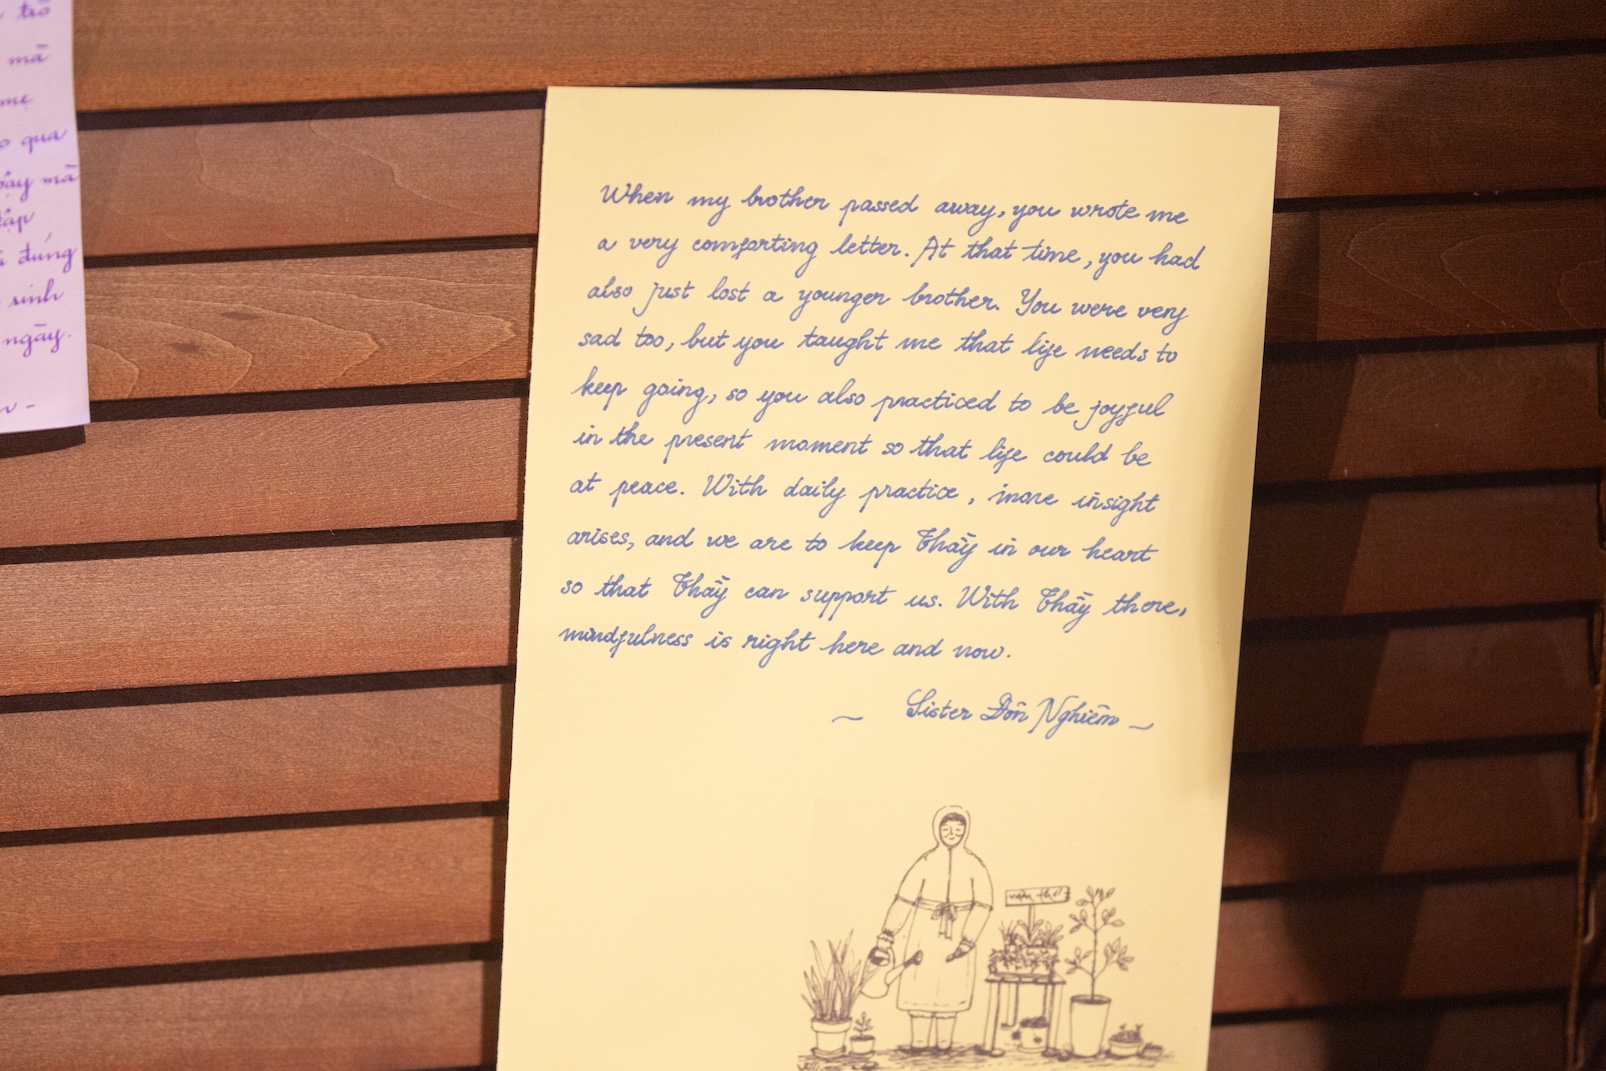 trò
mà
mẹ
qua
vậy mà
tập
đúng
sinh
ngày.
When my brother passed away, you wrote me
a very comforting letter. At that time, you had
also just lost a younger brother. You were very
sad too, but you taught me that life needs to
keep going, so you also practiced to be joyful
in the present moment so that life could be
at peace. With daily practice, more insight
arises, and we are to keep Thầy in our heart
so that Thầy can support us. With Thầy there,
mindfulness is right here and now.
~ Sister Đôn Nghiêm ~